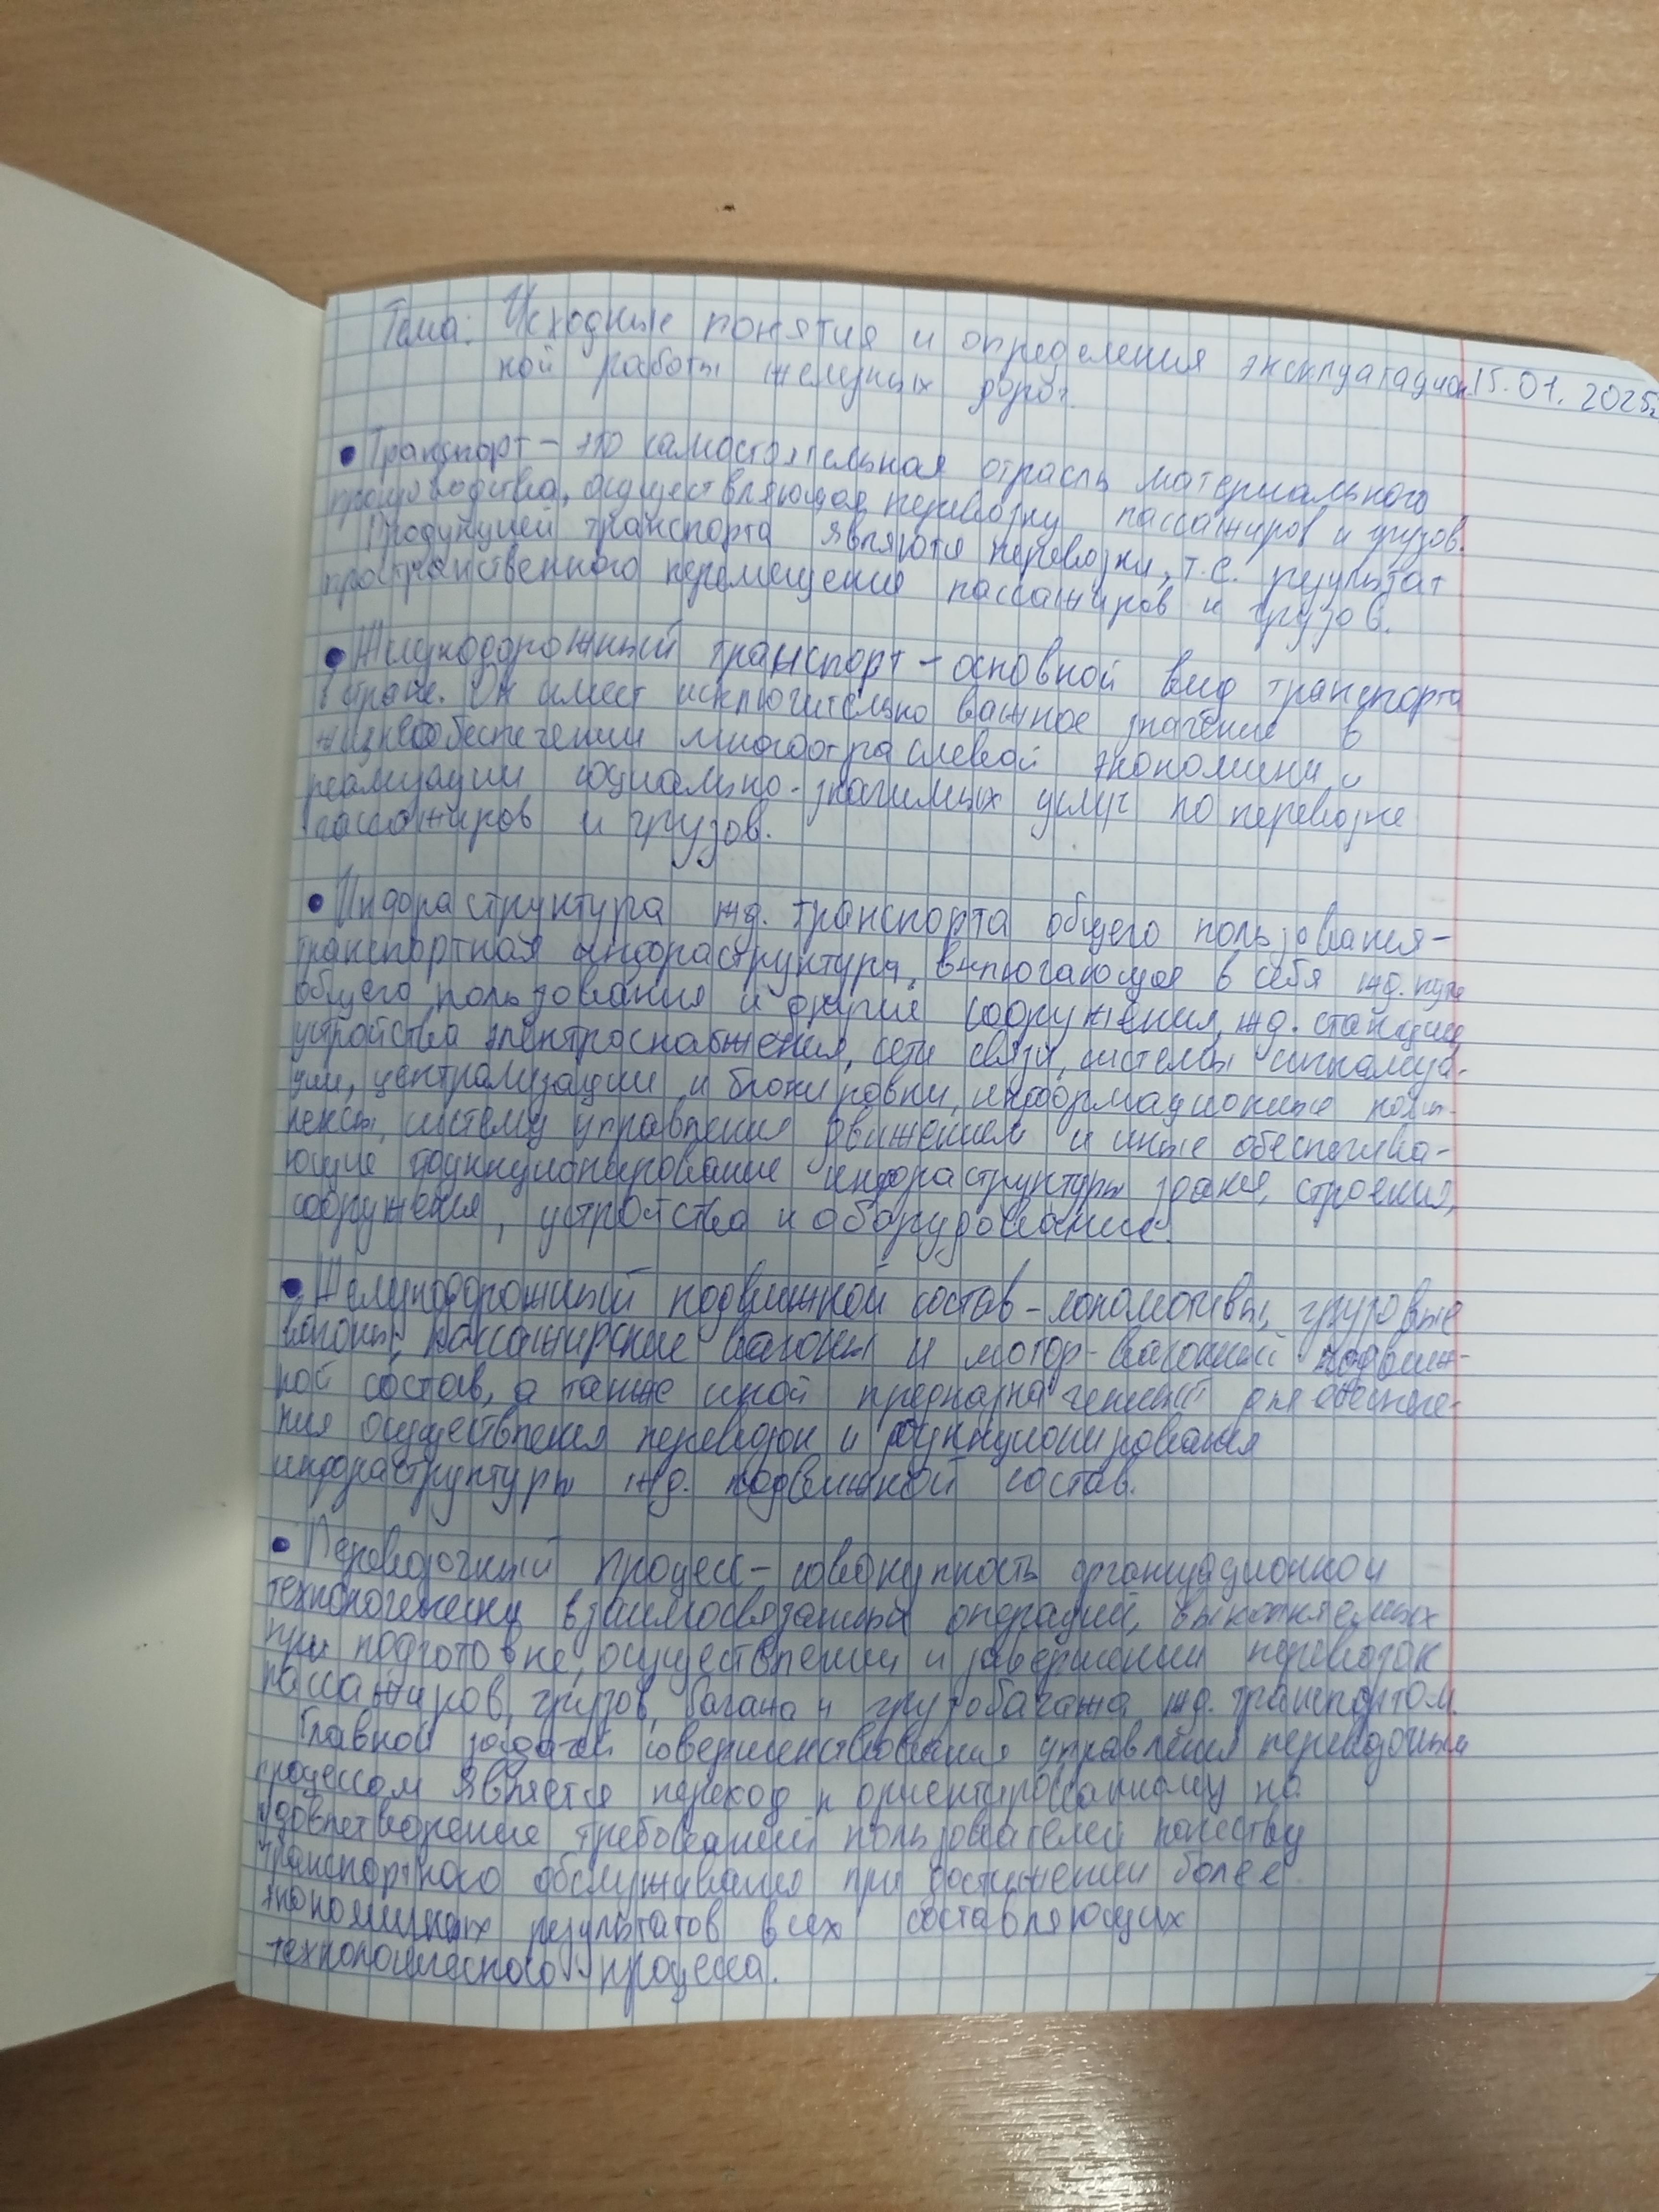 Тема: Исходные понятия и определения эксплуатацион
15.01.2025г
ной работы железных дорог.
• Транспорт – это самостоятельная отрасль материального
производства, осуществляющая перевозку пассажиров и грузов.
Продукцией транспорта являются перевозки, т.е. результат
пространственного перемещения пассажиров и грузов.
• Железнодорожный транспорт – основной вид транспорта
в стране. Он имеет исключительно важное значение в
жизнеобеспечении многоотраслевой экономики и
реализации социально-значимых услуг по перевозке
пассажиров и грузов.
• Инфраструктура жд. транспорта общего пользования –
транспортная инфраструктура, включающая в себя жд. пути
общего пользования и другие сооружения, жд. станции
устройства электроснабжения, сети связи, системы сигнализа-
ции, централизации и блокировки, информационные комп-
лексы, систему управления движением и иные обеспечива-
ющие функционирование инфраструктуры здания, строения,
сооружения, устройства и оборудование.
• Железнодорожный подвижной состав – локомотивы, грузовые
вагоны, пассажирские вагоны и мотор-вагонный подвиж-
ной состав, а также иной предназначенный для обеспече-
ния осуществления перевозок и функционирования
инфраструктуры жд. подвижной состав.
• Перевозочный процесс – совокупность организационной
технологически взаимосвязанных операций, выполняемых
при подготовке, осуществлении и завершении перевозок
пассажиров, грузов, багажа и грузобагажа жд. транспортом.
Главной задачей совершенствования управления перевозочным
процессом является переход к ориентированному на
удовлетворение требований пользователей качеству
транспортного обслуживания при достижении более
экономичных результатов всех составляющих
технологического процесса.